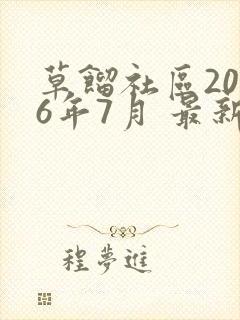 草餾社區20
6年7月 最新
程夢進